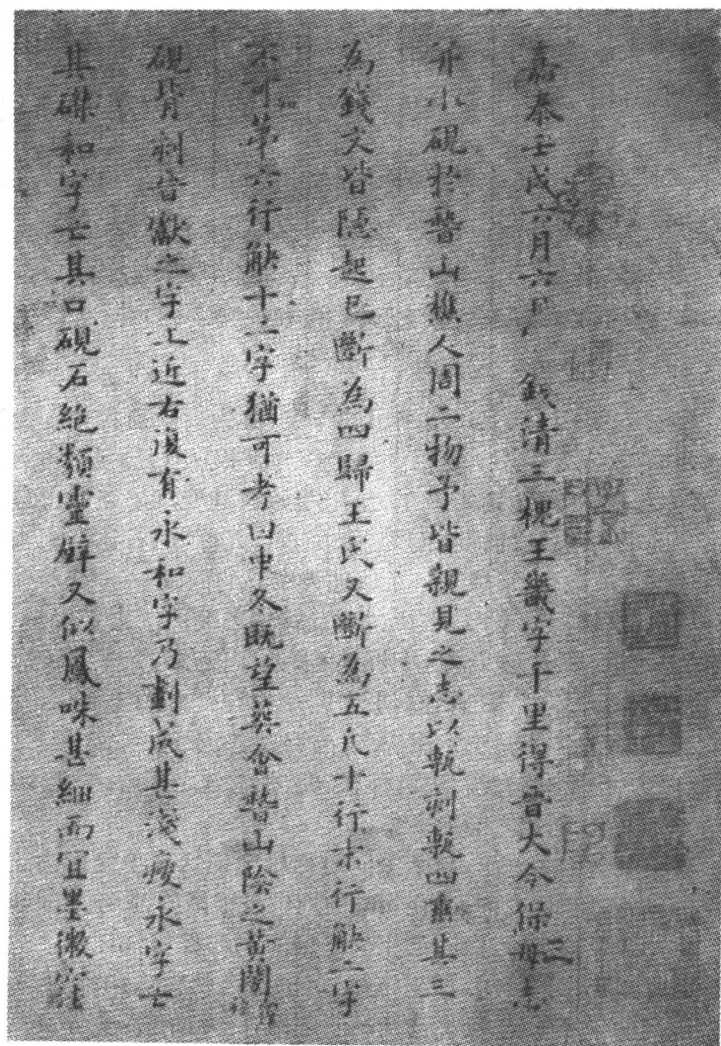 嘉泰壬戌六月六日錢清三槐王畿字千里得晉大令保母志
并小硯於稽山樵人周二物予皆親見之志以甎刻甎四垂其三
為錢文皆隱起已斷為四歸王氏又斷為五凡十行末行觖二字
不可知第六行觖十二字猶可考曰中冬既望葬會稽山陰之黃閍
硯背刻晉獻之字上近右復有永和字乃劃成甚淺瘦永字亡
其磔和字亡其口硯石絕類靈壁又似鳳咮甚細而宜墨微窪